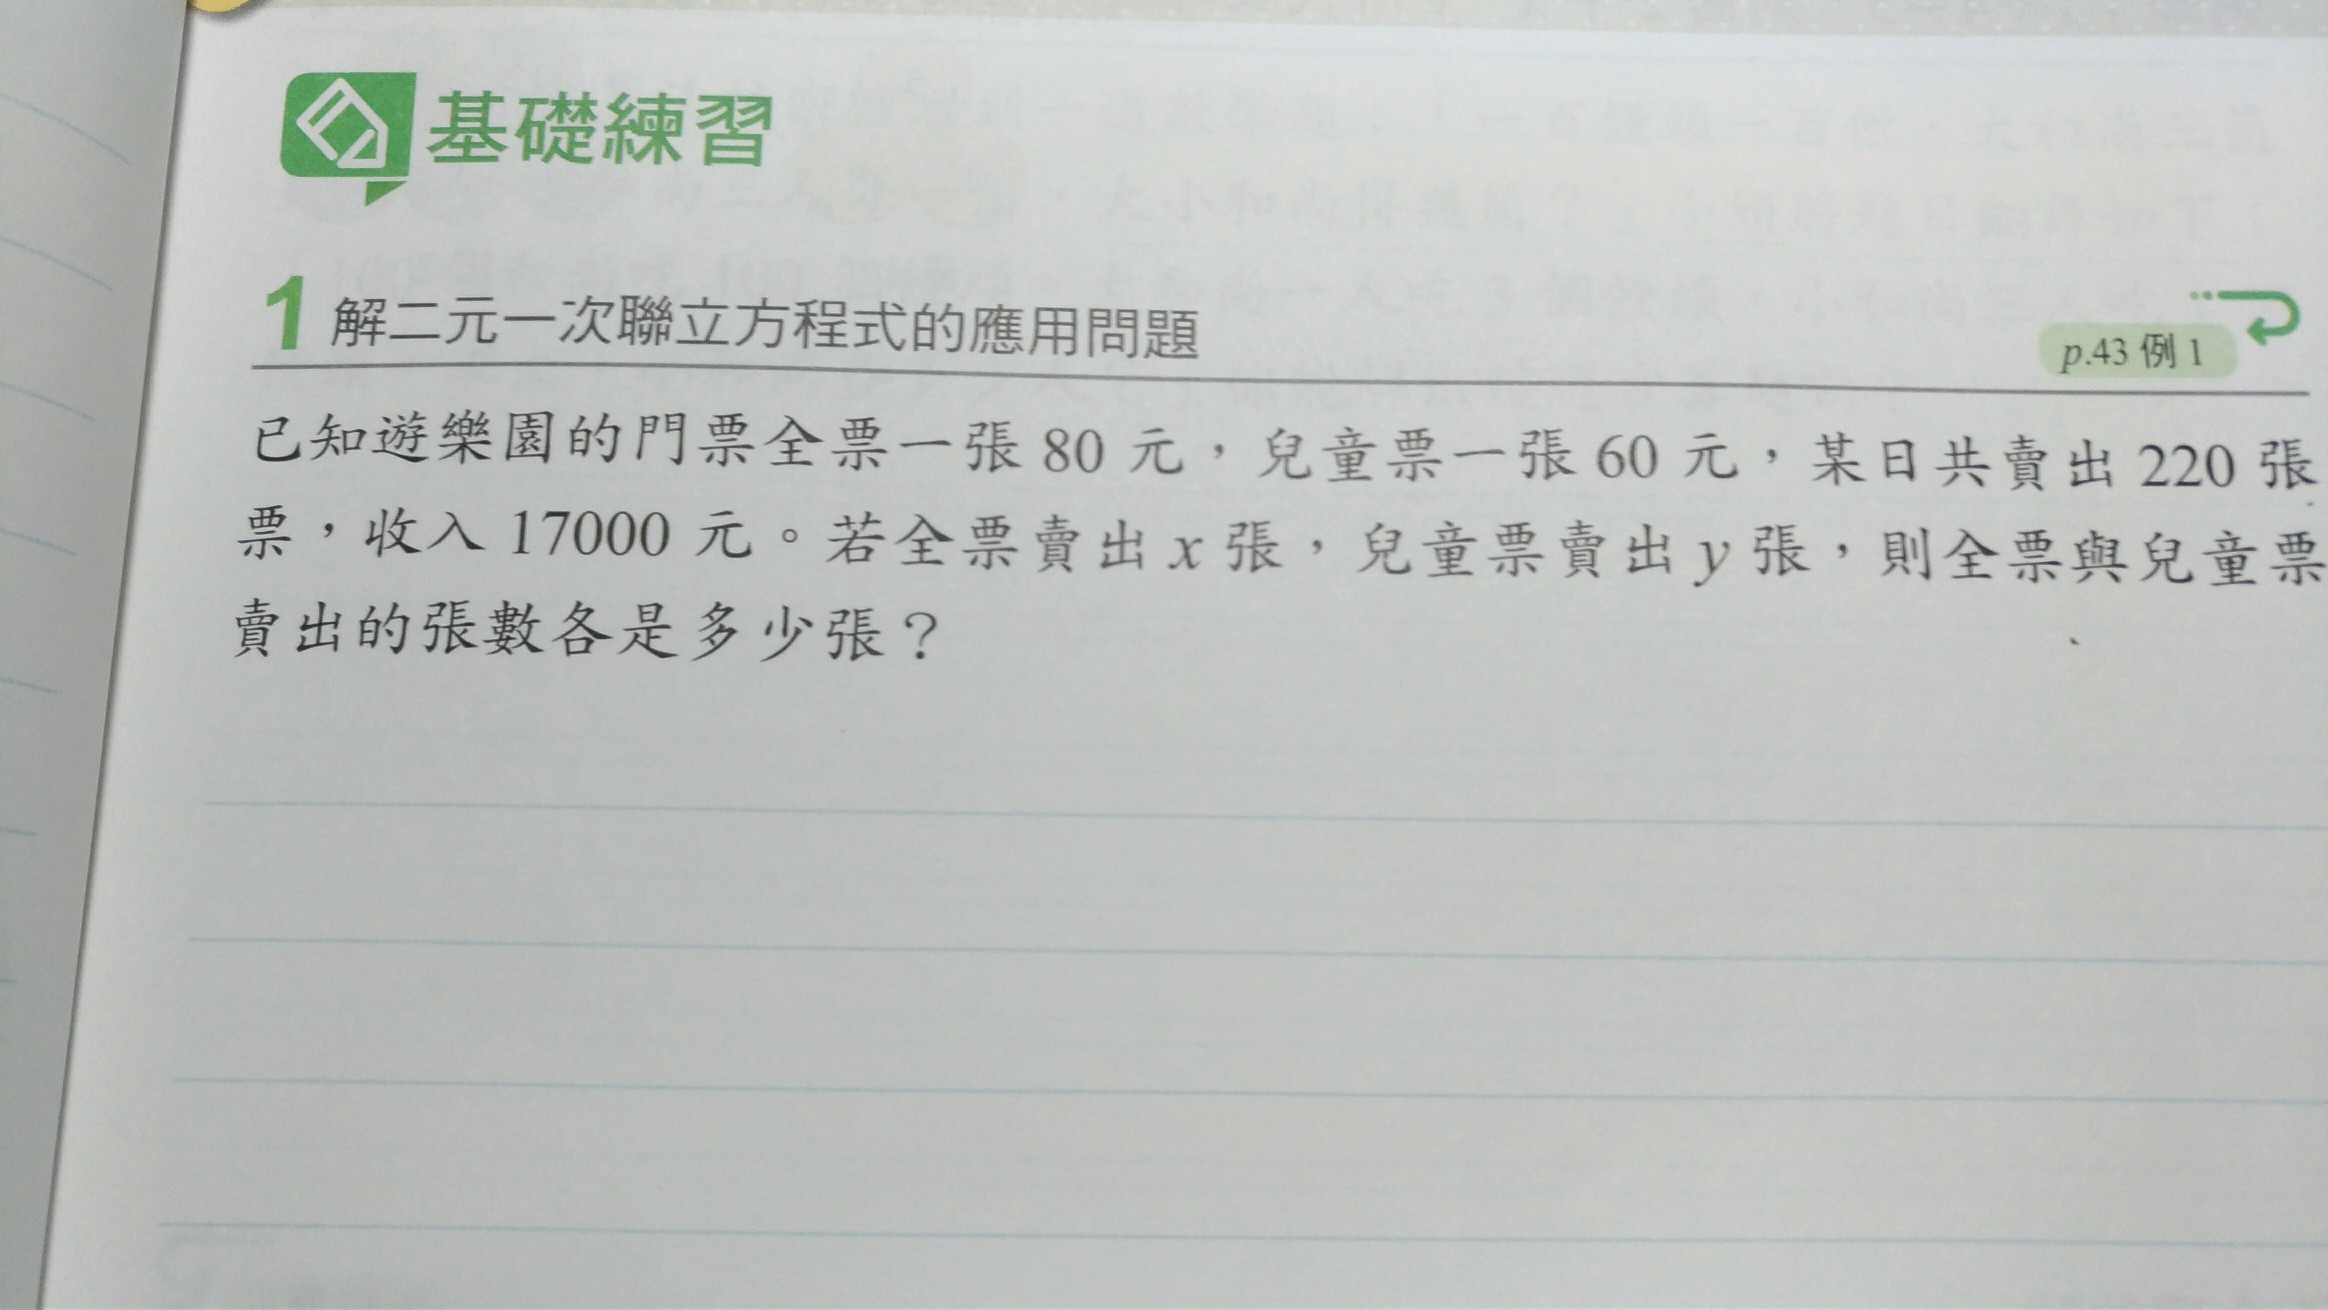 基礎練習
1 解二元一次聯立方程式的應用問題
p.43 例 1
已知遊樂園的門票全票一張 80 元，兒童票一張 60 元，某日共賣出 220 張
票，收入 17000 元。若全票賣出 x 張，兒童票賣出 y 張，則全票與兒童票
賣出的張數各是多少張？